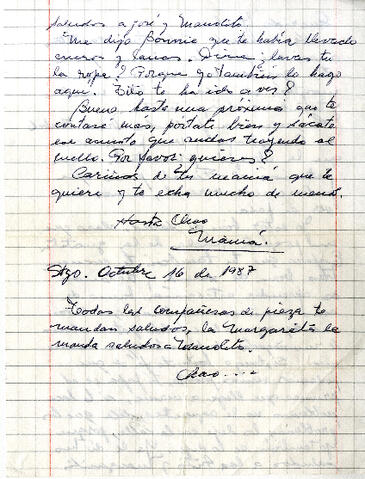 saludos a José y Manolito.
Me dijo Bonnie que te había llevado
cueros y lanas. Dime ¿lavas tu
la ropa? Porque yo también lo hago
aquí. Tito te ha ido a ver?
Bueno hasta una próxima que te
contaré más, pórtate bien y sácate
ese amuleto que andas trayendo al
cuello. Por favor quieres?
Cariños de tu mamá que te
quiere y te echa mucho de menos.
Hasta Chao
Mamá.
Stgo. Octubre 16 de 1987
Todas las compañeras de pieza te
mandan saludos, la Margarita le
manda saludos a Manolito.
Chao....